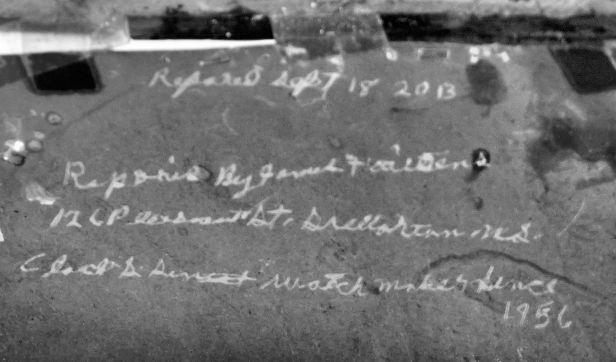 Repared Sept 18 2013
Reparie By James
126 Pleasant St. Stellarton N.S.
Clock & watch maker since
1956